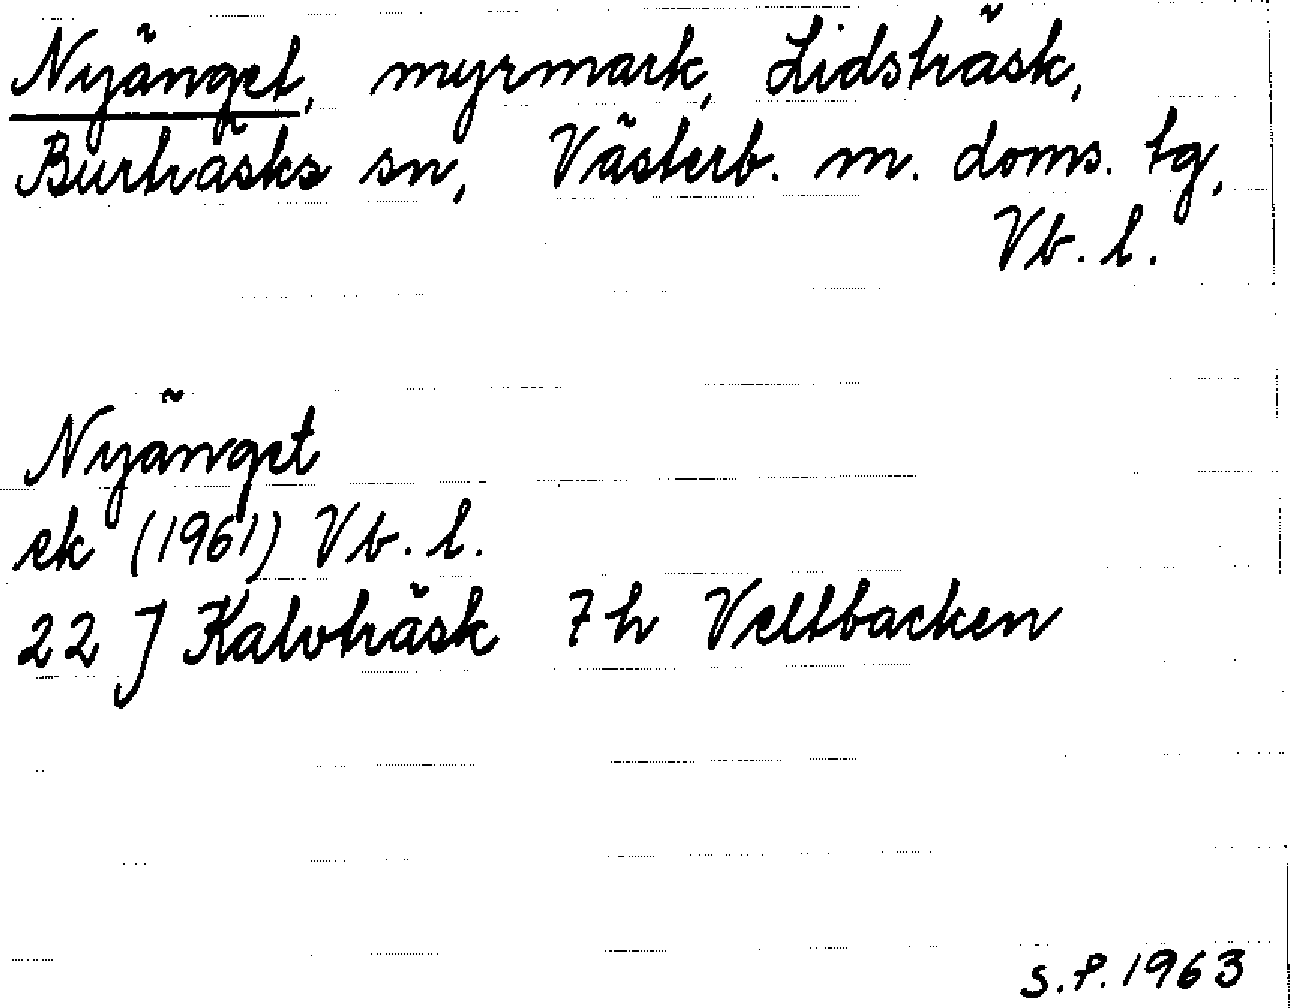 Nyänget, myrmark, Lidsträsk,
Burträsks sn, Västerb. m. doms. tg,
Vb. l.
Nyänget
ek (1961) Vb. l.
22 J Kalvträsk 7 h Veltbacken
S.P. 1963